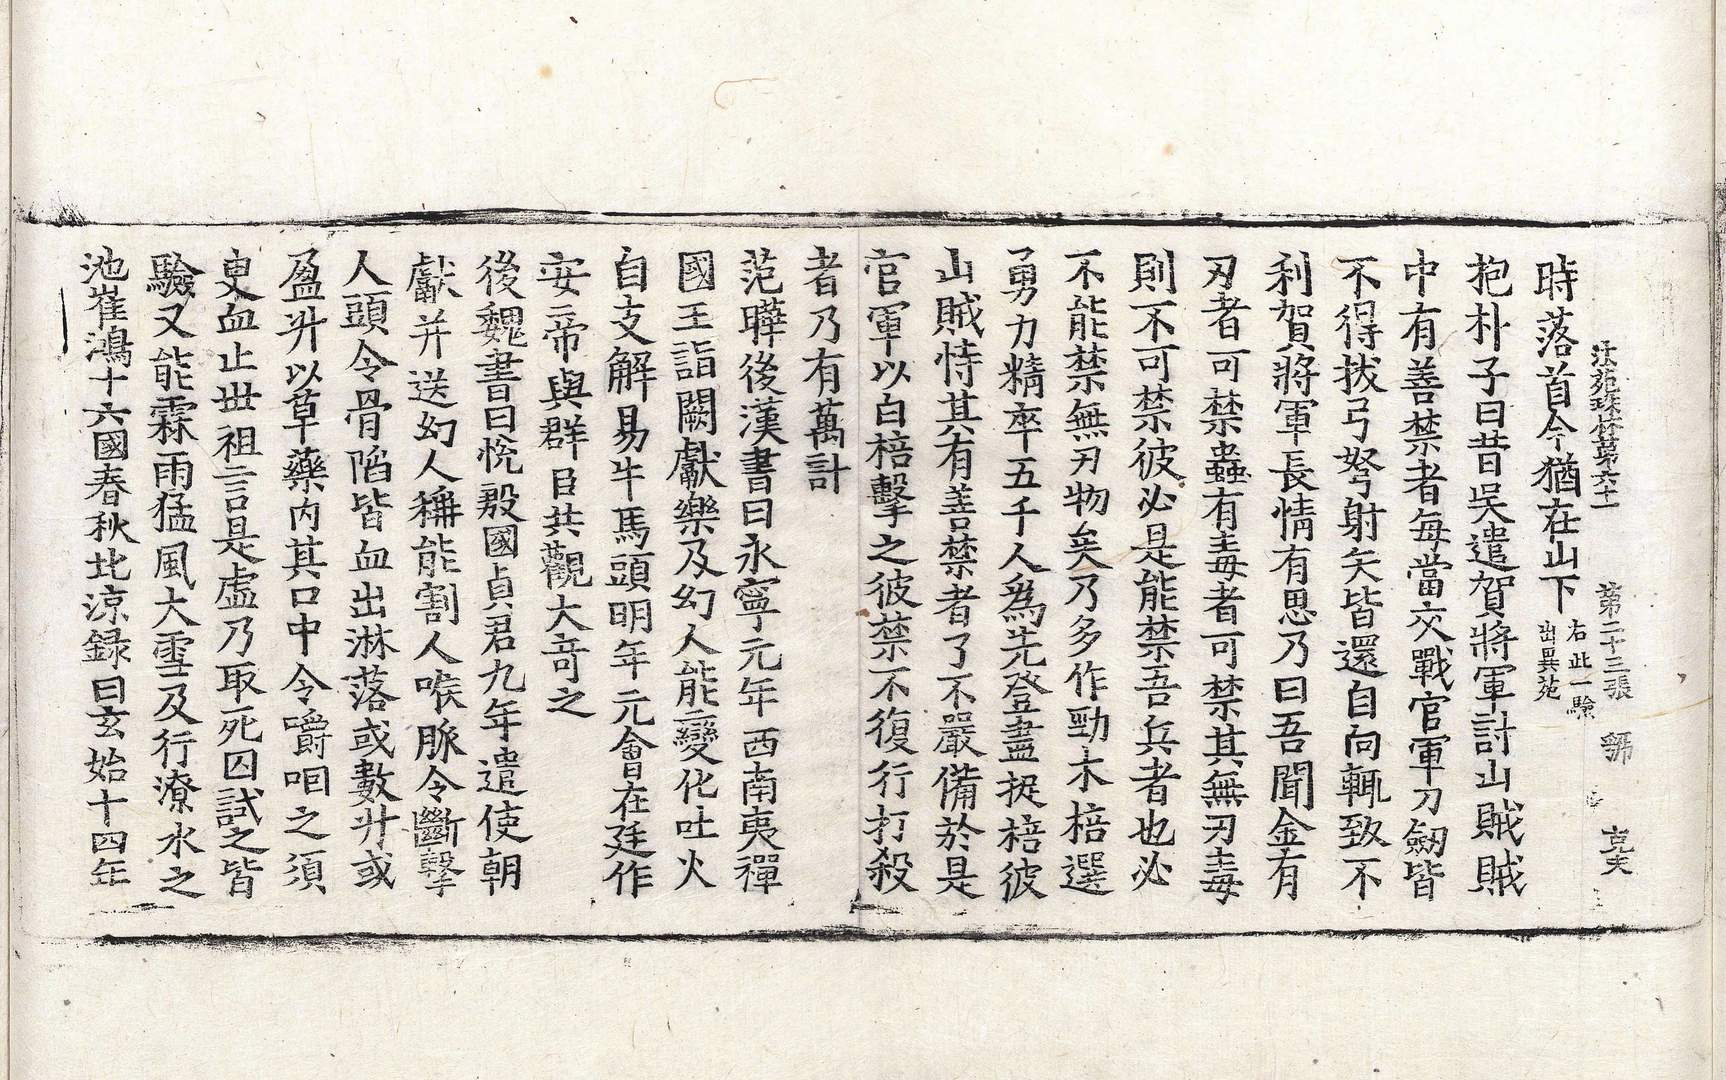 法苑珠林第六十一 第二十三張 弱 克夫
時落首今猶在山下 右此一驗 出異苑
抱朴子曰昔吳遣賀將軍討山賊賊
中有善禁者每當交戰官軍刀劒皆
不得拔弓弩射矢皆還自向輒致不
利賀將軍長情有思乃曰吾聞金有
刃者可禁蟲有毒者可禁其無刃毒
則不可禁彼必是能禁吾兵者也必
不能禁無刃物矣乃多作勁木棓選
勇力精卒五千人爲先登盡捉棓彼
山賊恃其有善禁者了不嚴備於是
官軍以白棓擊之彼禁不復行打殺
者乃有萬計
范曄後漢書曰永寧元年西南夷禪
國王詣闕獻樂及幻人能變化吐火
自支解易牛馬頭明年元會在廷作
安帝與群臣共觀大奇之
後魏書曰悅般國貞君九年遣使朝
獻并送幻人稱能割人喉脉令斷擊
人頭令骨陷皆血出淋落或數升或
盈升以草藥內其口中令嚼咽之須
臾血止世祖言是虛乃取死囚試之皆
驗又能霖雨猛風大雪及行潦水之
池崔鴻十六國春秋北涼録曰玄始十四年